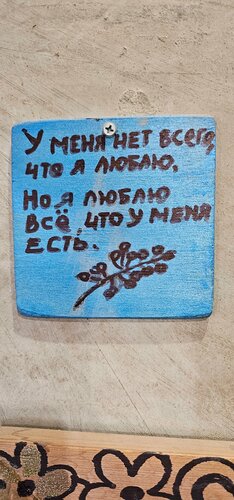 У МЕНЯ НЕТ ВСЕГО,
ЧТО Я ЛЮБЛЮ,
НО Я ЛЮБЛЮ
ВСЁ, ЧТО У МЕНЯ
ЕСТЬ.